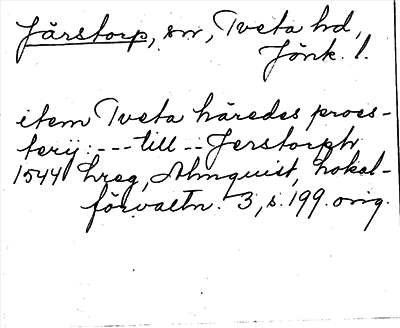 Järstorp, sn, Tveta hd,
Jönk. l.
item Tveta häredes proes-
terij: --- till -- Jerstorph
1544 hreg, Almquist, Lokal-
förvaltn. 3, s. 199. orig.